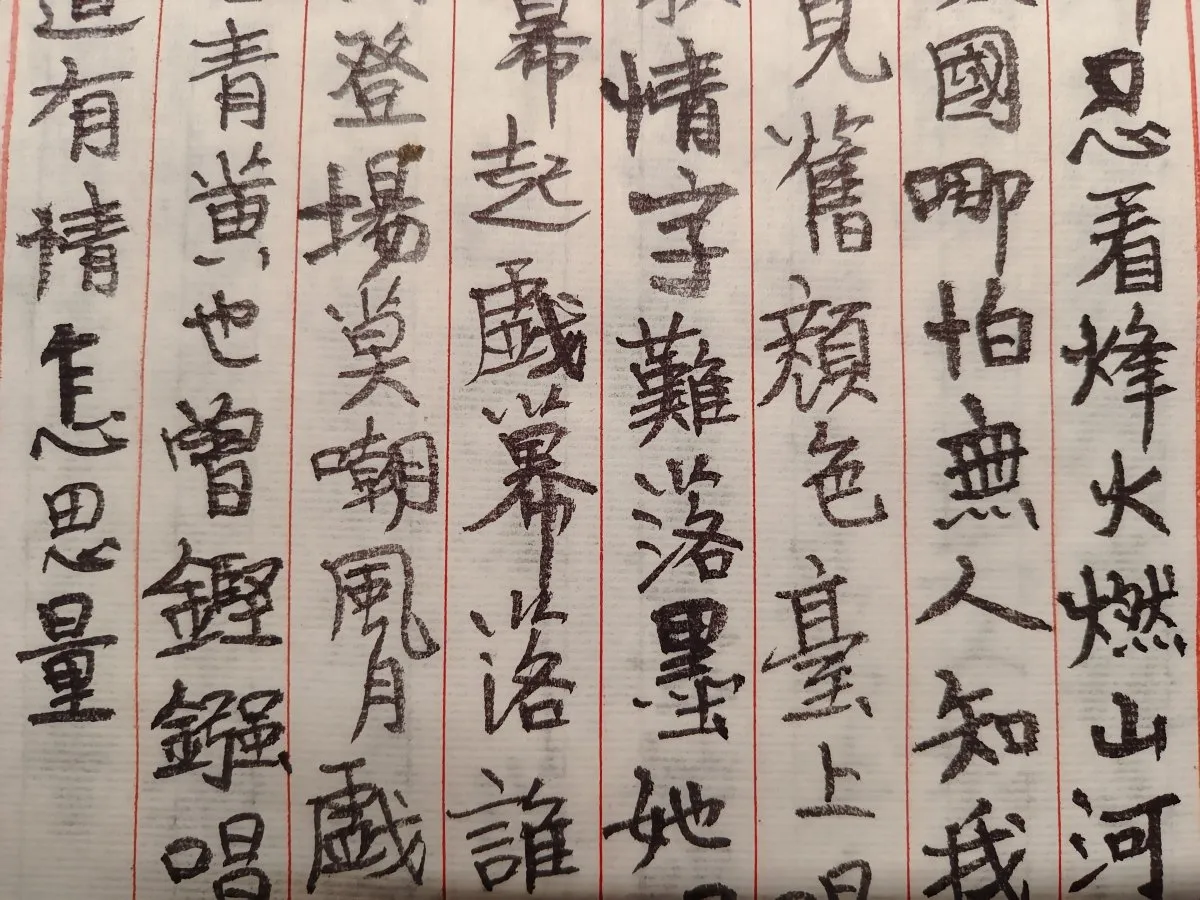 忍看烽火燃山河
國哪怕無人知我
見舊顏色臺上
情字難落墨她
幕起戲幕落誰
登場莫嘲風月戲
青黃也曾鏗鏹唱
道有情怎思量